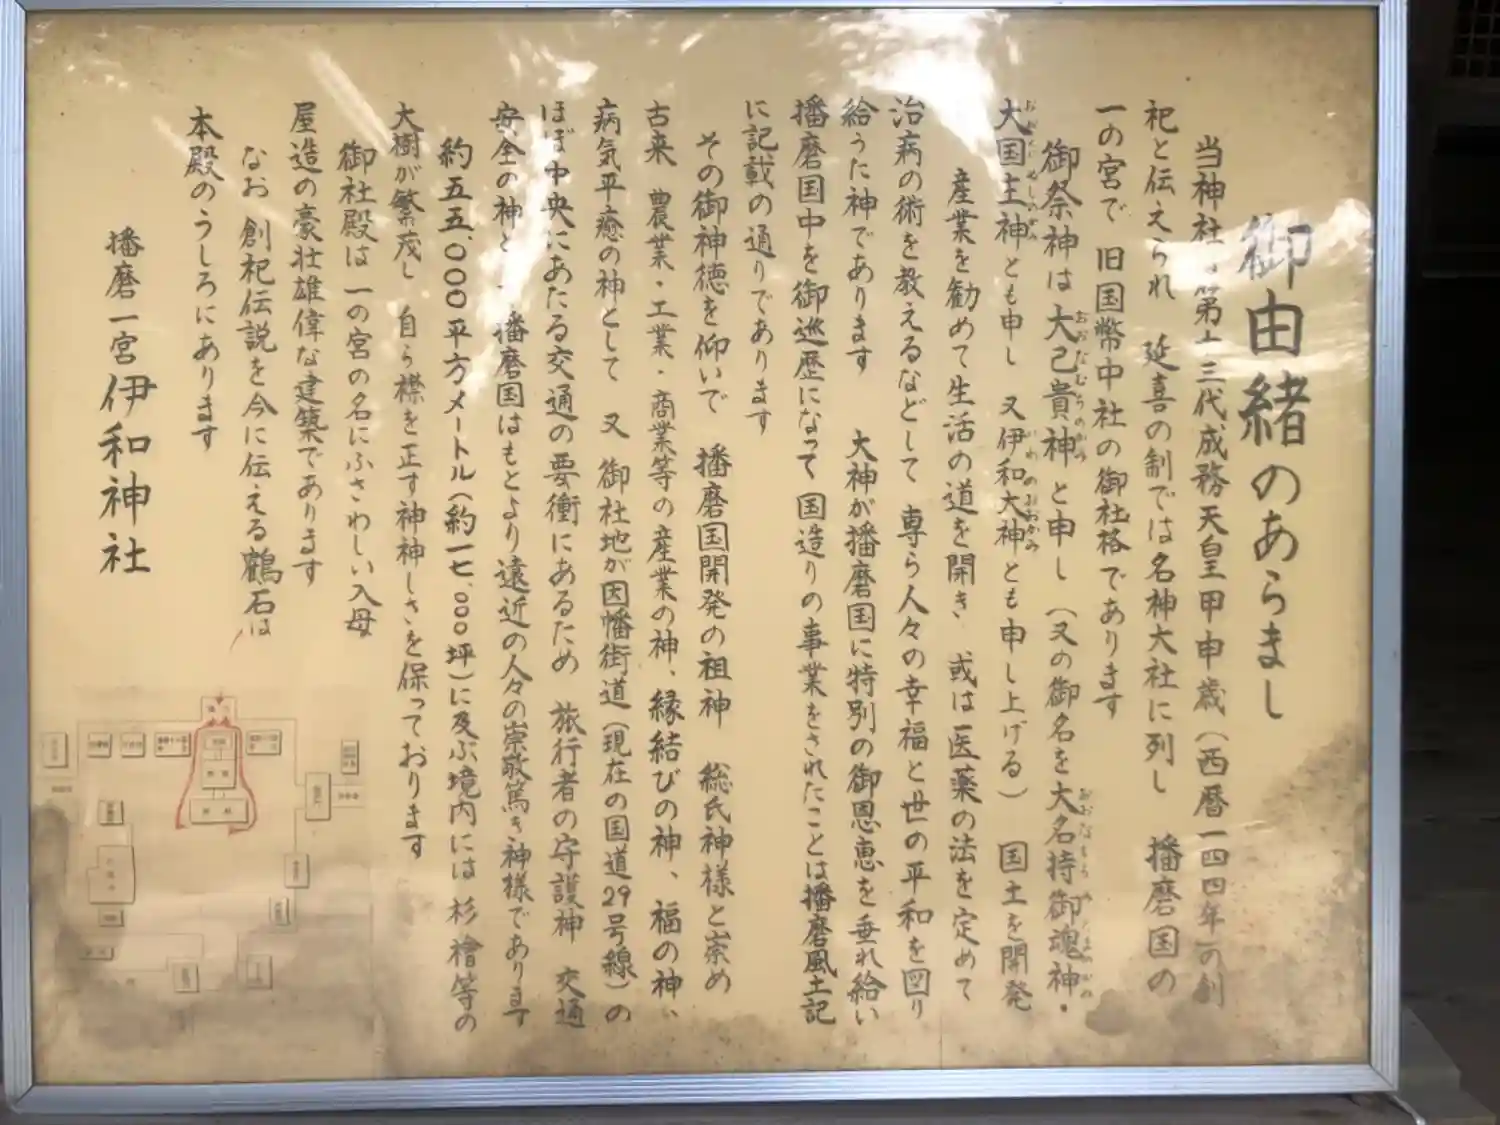 御由緒のあらまし
当神社は第十三代成務天皇甲申歳(西暦一四四年)の創
祀と伝えられ 延喜の制では名神大社に列し 播磨国の
一の宮で 旧国幣中社の御社格であります
御祭神は大己貴神と申し(又の御名を大名持御魂神・
大国主神とも申し 又伊和大神とも申し上げる) 国土を開発
産業を勧めて生活の道を開き、或は医薬の法を定めて
治病の術を教えるなどして 専ら人々の幸福と世の平和を図り
給うた神であります 大神が播磨国に特別の御恩恵を垂れ給い
播磨国中を御巡歴になって国造りの事業をされたことは播磨風土記
に記載の通りであります
その御神徳を仰いで 播磨国開発の祖神 総氏神様と崇め
古来 農業・工業・商業等の産業の神、縁結びの神、福の神、
病気平癒の神として 又 御社地が因幡街道(現在の国道29号線)の
ほぼ中央にあたる交通の要衝にあるため 旅行者の守護神 交通
安全の神と 播磨国はもとより遠近の人々の崇敬篤き神様であります
約五五、000平方メートル(約一七、000坪)に及ぶ境内には 杉 檜等の
大樹が繁茂し 自ら襟を正す神神しさを保っております
御社殿は一の宮の名にふさわしい入母
屋造の豪壮雄偉な建築であります
なお 創祀伝説を今に伝える鶴石は
本殿のうしろにあります
播磨一宮 伊和神社